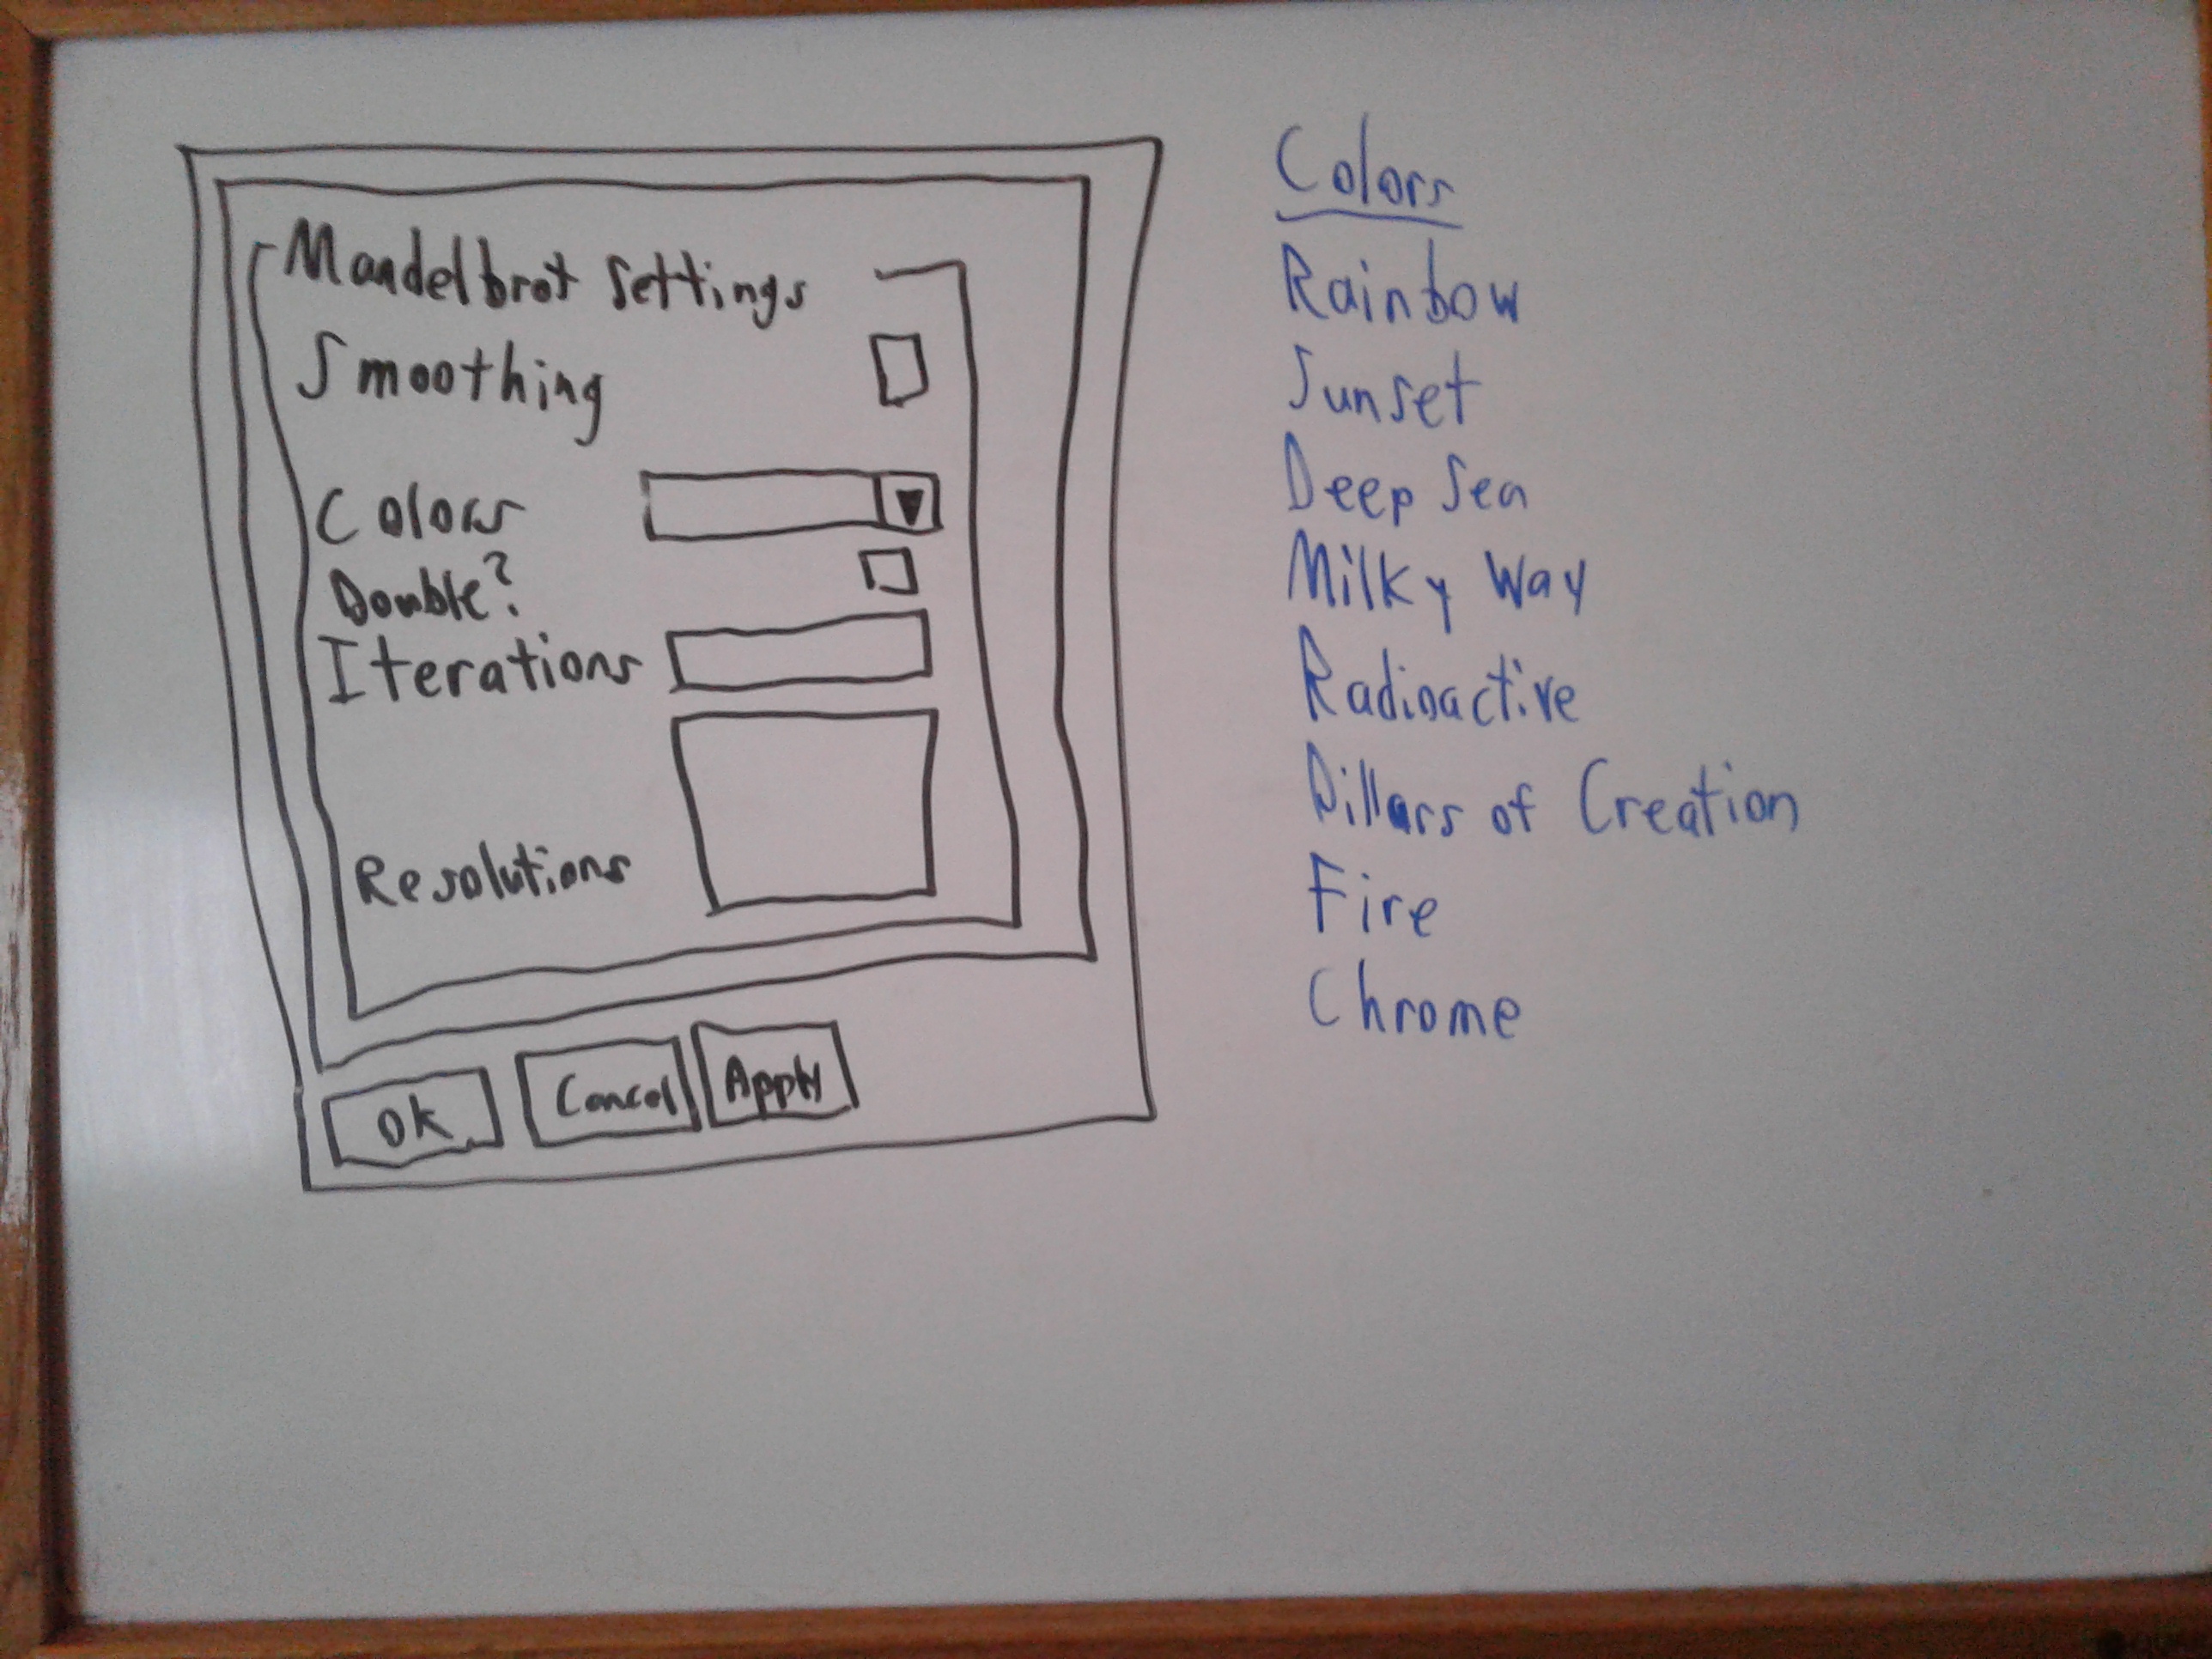 Mandelbrot Settings
Smoothing
Colors
Double?
Iterations
Resolutions
OK Cancel Apply
Colors
Rainbow
Sunset
Deep Sea
Milky Way
Radioactive
Pillars of Creation
Fire
Chrome